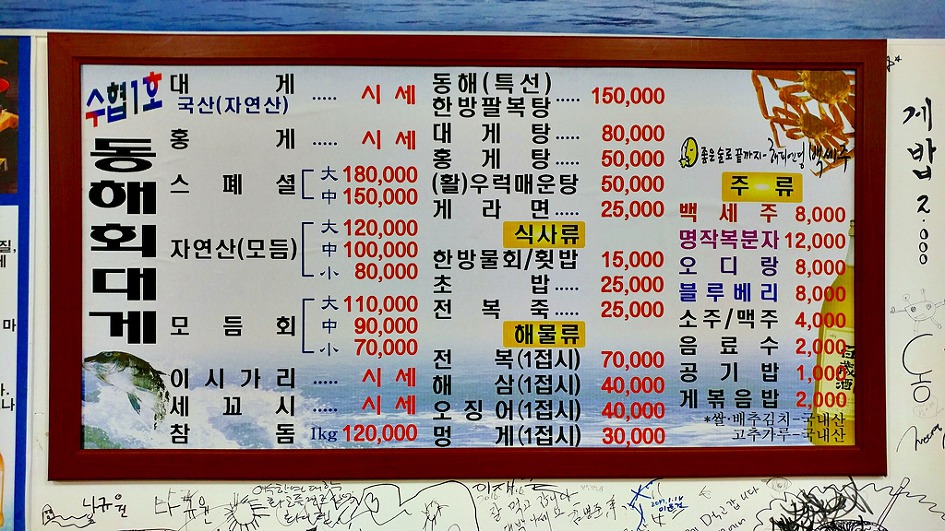 수협1호
동해회대게
대 게 ..... 시 세
국산(자연산)
홍 게 ..... 시 세
스 페 셜 大 180,000
中 150,000
자연산(모듬) 大 120,000
中 100,000
小 80,000
모 듬 회 大 110,000
中 90,000
小 70,000
이 시 가 리 ..... 시 세
세 꼬 시 ..... 시 세
참 돔 1kg 120,000
동해(특선)
한방팔복탕 ..... 150,000
대 게 탕 ..... 80,000
홍 게 탕 ..... 50,000
(활)우럭매운탕 50,000
게 라 면 ..... 25,000
식사류
한방물회/횟밥 15,000
초 밥 ..... 25,000
전 복 죽 ..... 25,000
해물류
전 복(1접시) 70,000
해 삼(1접시) 40,000
오 징 어(1접시) 40,000
멍 게(1접시) 30,000
좋은 술로 끝까지-해피엔딩 백세주
주 류
백 세 주 8,000
명작복분자 12,000
오 디 랑 8,000
블 루 베 리 8,000
소주/맥주 4,000
음 료 수 2,000
공 기 밥 1,000
게 볶 음 밥 2,000
*쌀·배추김치-국내산
고추가루-국내산
게밥 2.000
잘 먹고 갑니다